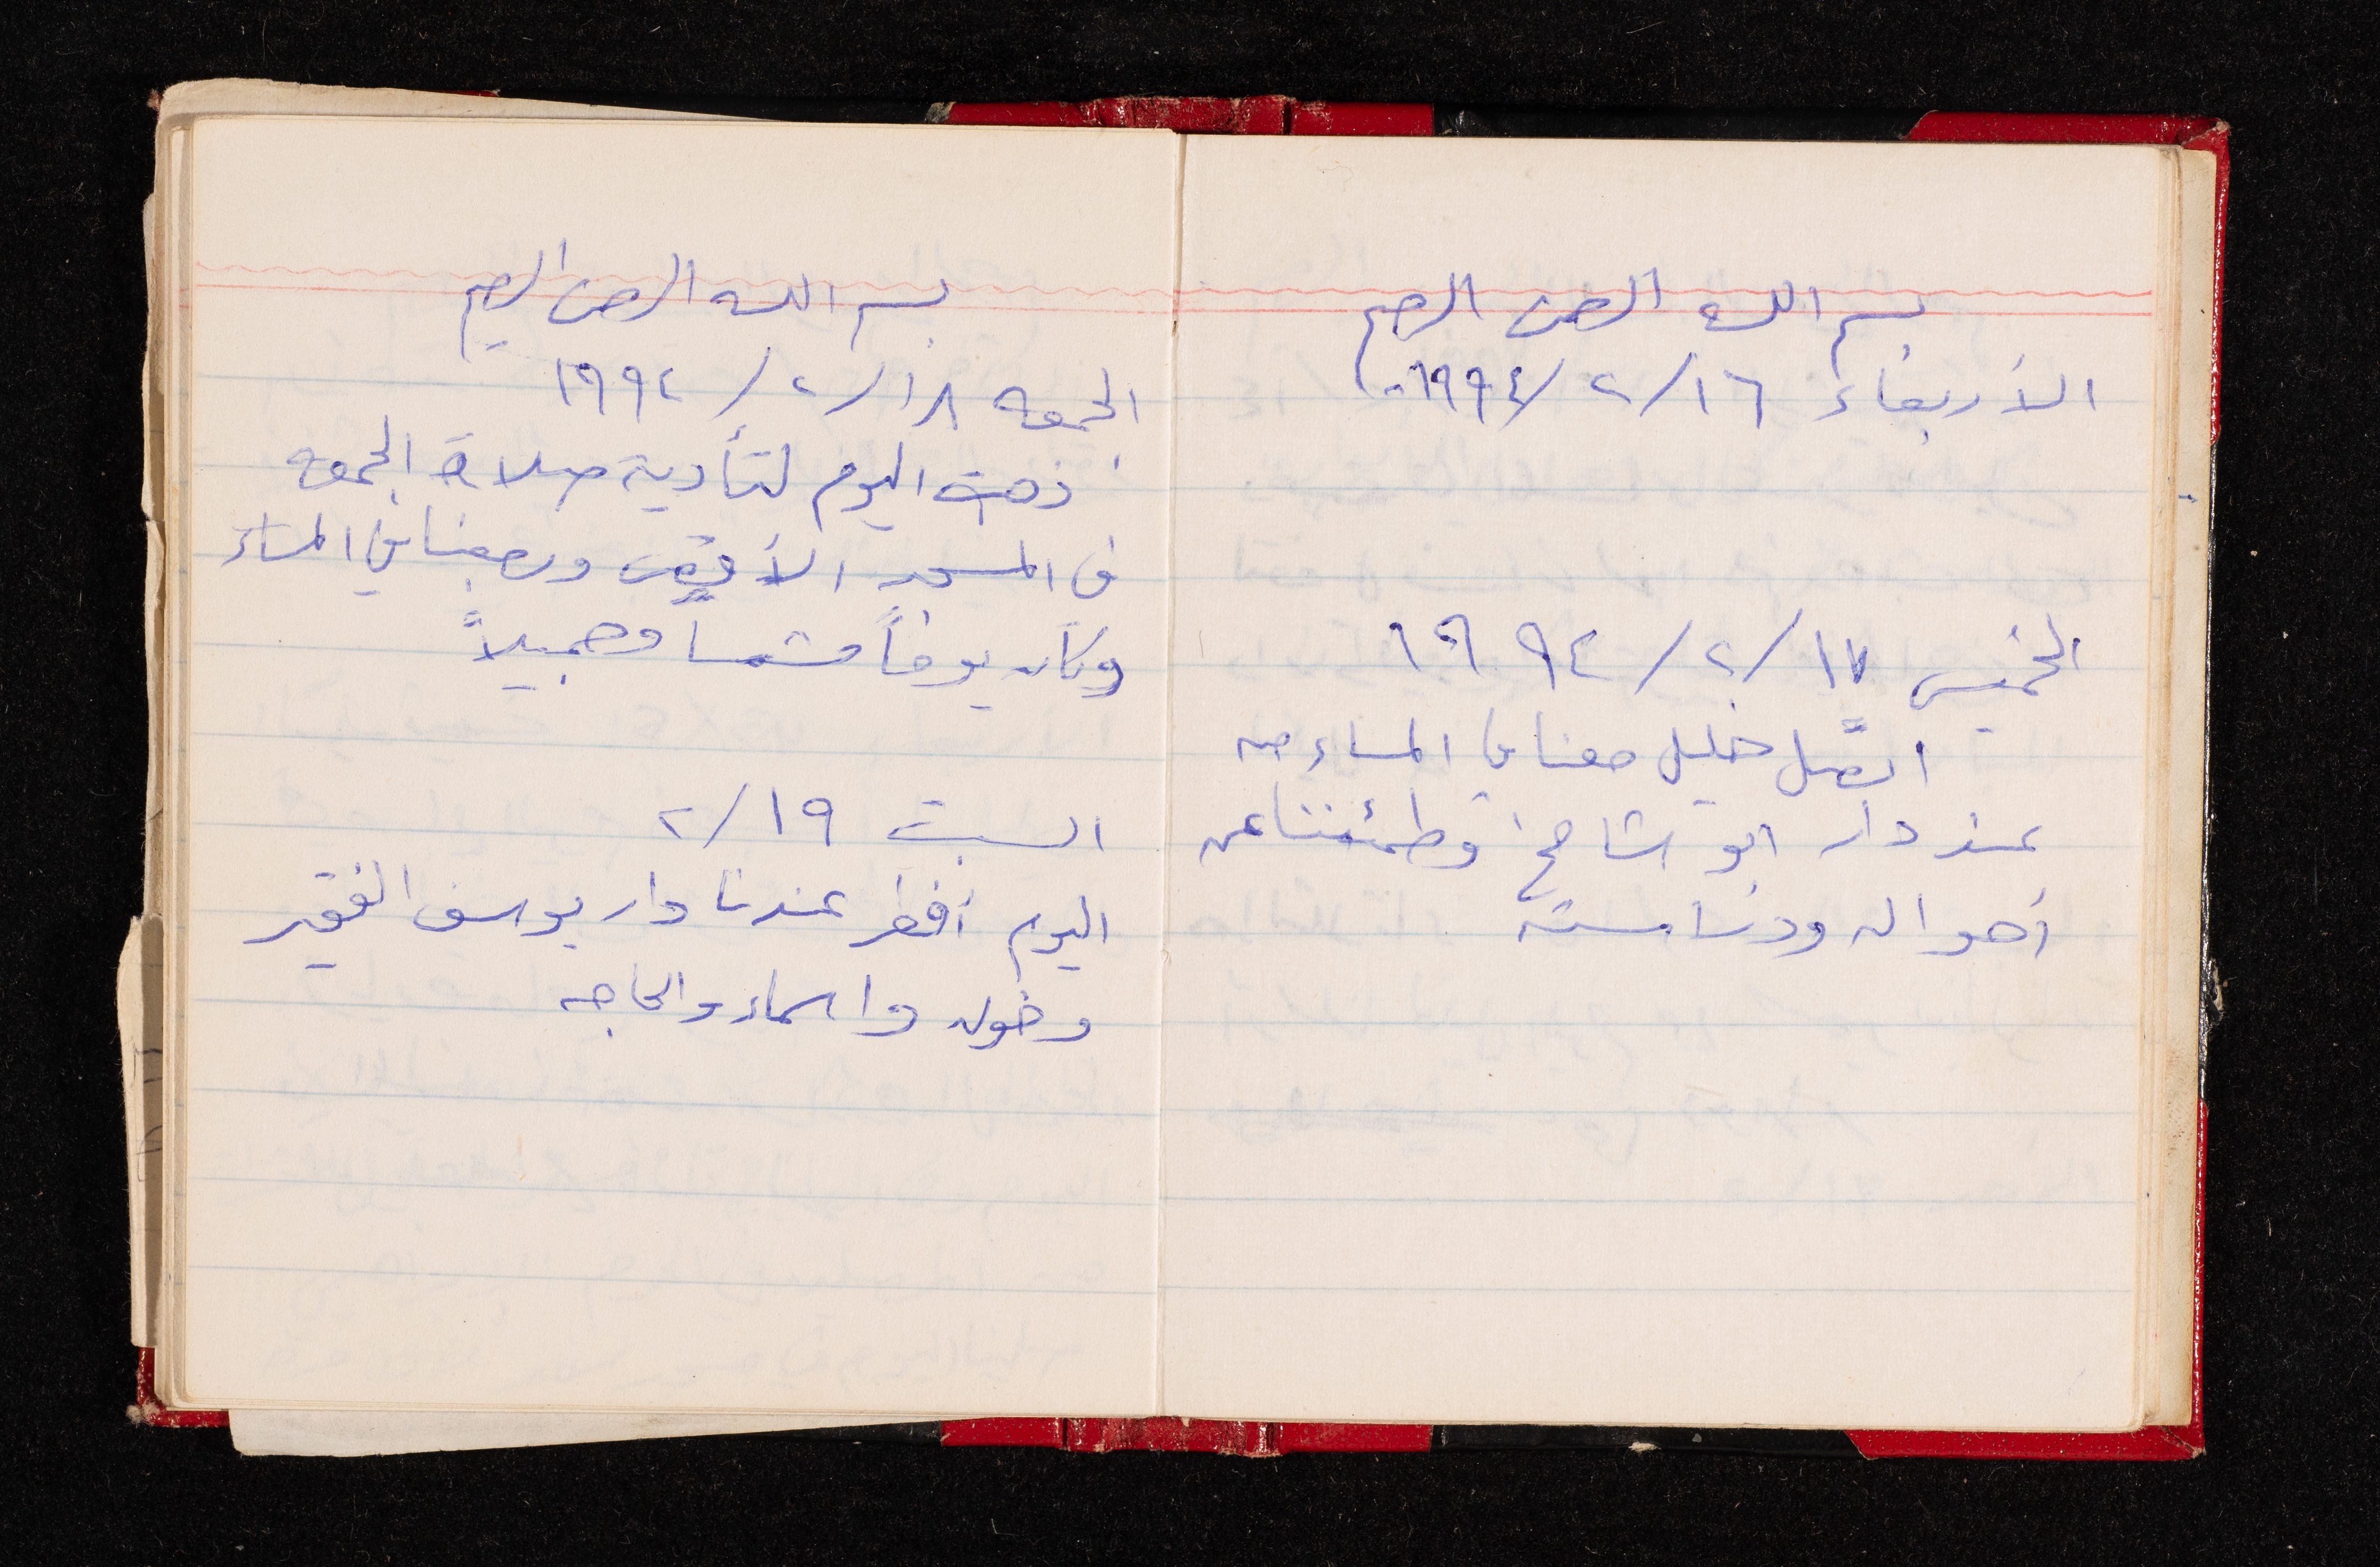 بسم الله الرحمن الرحيم
الأربعاء ١٦/٢/١٩٩٤
الخميس ١٧/٢/١٩٩٤
اتصل خليل معنا في المساء من
عند دار ابو شامخ وطمئننا عن
أحواله ودراسته
بسم الله الرحمن الرحيم
الجمعه ١٨/٢/١٩٩٤
ذهبت اليوم لتأدية صلاة الجمعه
في المسجد الأقصى ورجعنا في المساء
وكان يوماً مشمسا وجميلاً
السبت ١٩/٢
اليوم أفطر عندنا دار يوسف الفقير
وخوله واسماء والحاجه